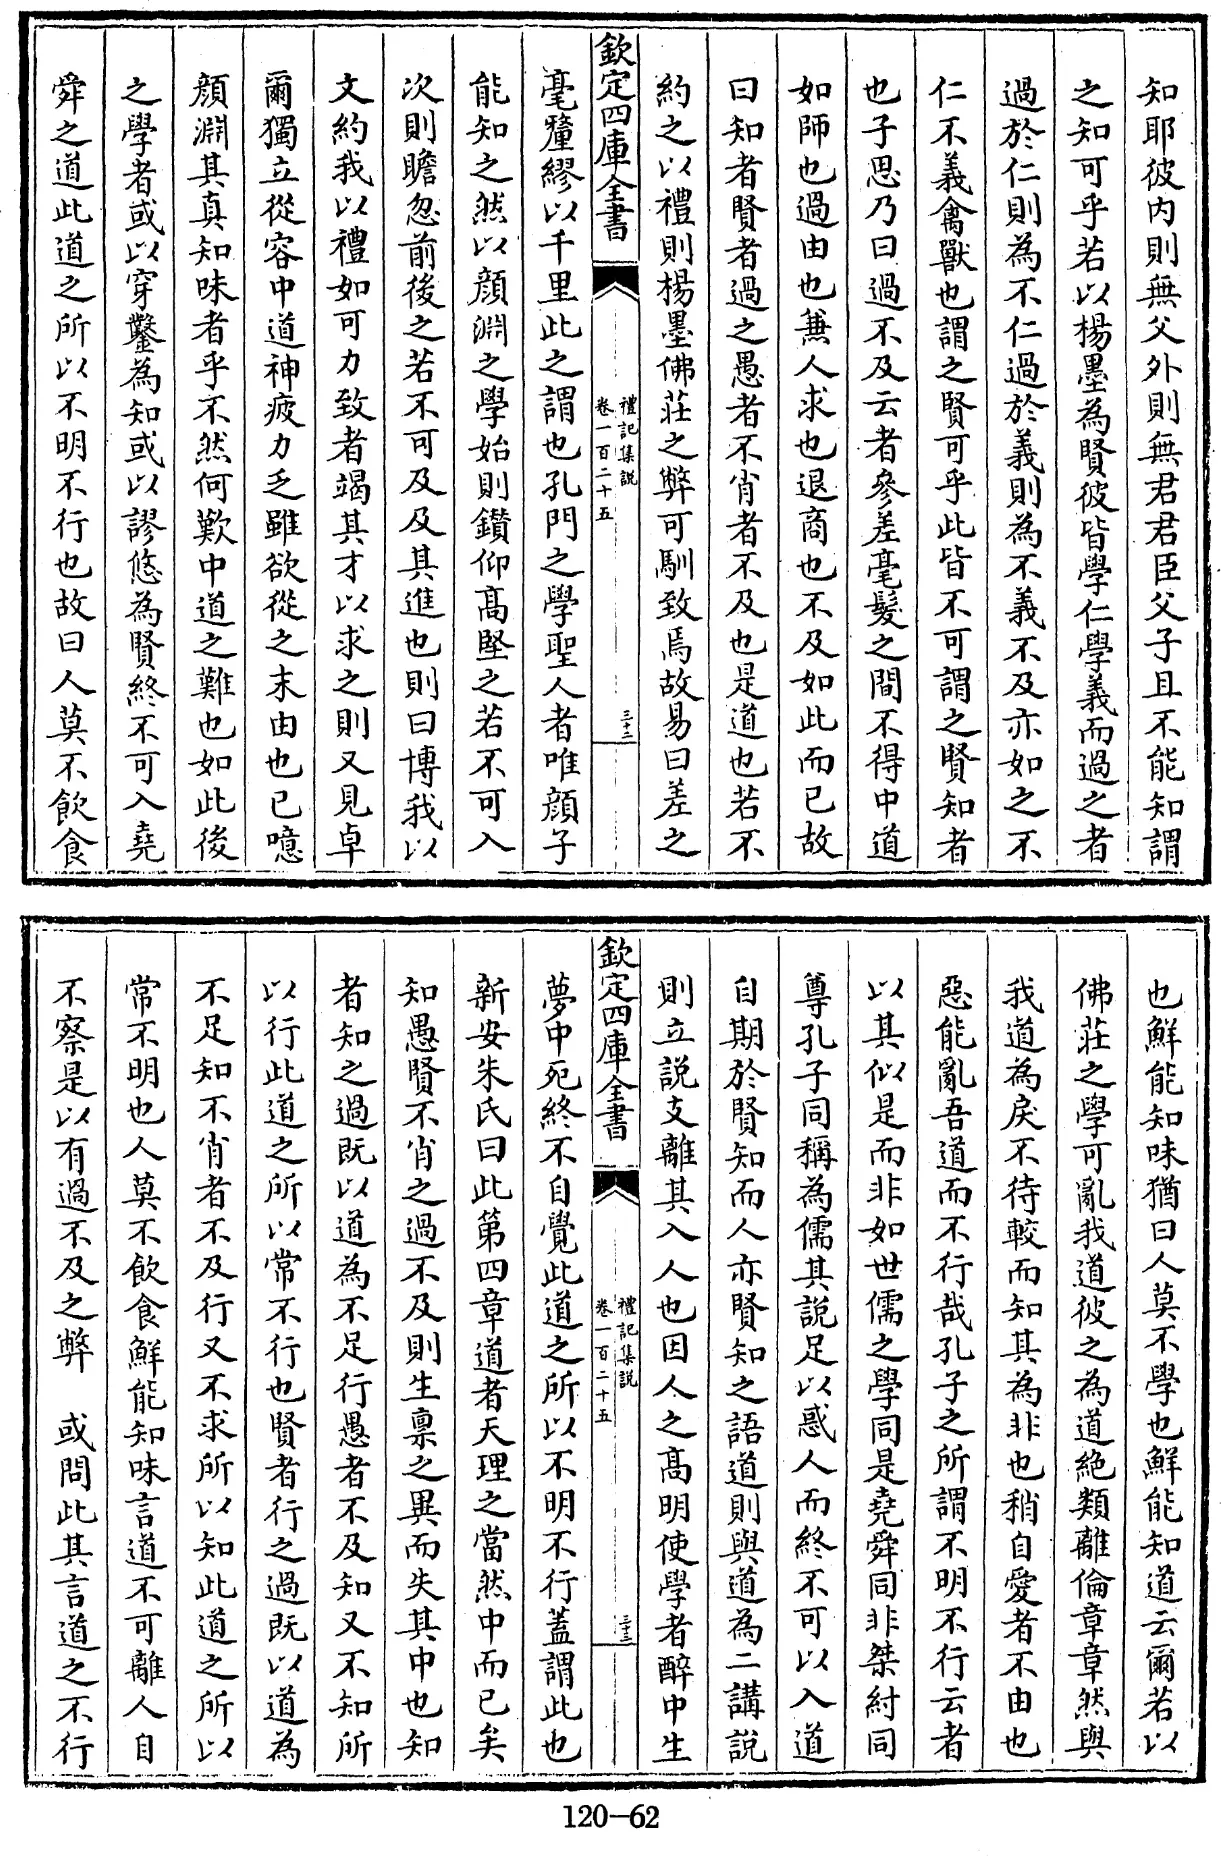 知耶彼内則無父外則無君君臣父子且不能知謂
之知可乎若以楊墨為賢彼皆學仁學義而過之者
過於仁則為不仁過於義則為不義不及亦如之不
仁不義禽獸也謂之賢可乎此皆不可謂之賢知者
也子思乃曰過不及云者參差毫髮之間不得中道
如師也過由也兼人求也退商也不及如此而已故
曰知者賢者過之愚者不肖者不及也是道也若不
約之以禮則楊墨佛莊之弊可馴致焉故易曰差之
欽定四庫全書
禮記集説
卷一百二十五
三十二
毫釐繆以千里此之謂也孔門之學聖人者唯顔子
能知之然以顔淵之學始則鑽仰髙堅之若不可入
次則瞻忽前後之若不可及及其進也則曰博我以
文約我以禮如可力致者竭其才以求之則又見卓
爾獨立從容中道神疲力乏雖欲從之末由也已噫
顔淵其真知味者乎不然何歎中道之難也如此後
之學者或以穿鑿為知或以謬悠為賢終不可入堯
舜之道此道之所以不明不行也故曰人莫不飲食
也鮮能知味猶曰人莫不學也鮮能知道云爾若以
佛莊之學可亂我道彼之為道絶類離倫章章然與
我道為戾不待較而知其為非也稍自愛者不由也
惡能亂吾道而不行哉孔子之所謂不明不行云者
以其似是而非如世儒之學同是堯舜同非桀紂同
尊孔子同稱為儒其説足以惑人而終不可以入道
自期於賢知而人亦賢知之語道則與道為二講説
則立説支離其入人也因人之髙明使學者醉中生
欽定四庫全書
禮記集説
卷一百二十五
三十三
夢中死終不自覺此道之所以不明不行蓋謂此也
新安朱氏曰此第四章道者天理之當然中而已矣
知愚賢不肖之過不及則生禀之異而失其中也知
者知之過既以道為不足行愚者不及知又不知所
以行此道之所以常不行也賢者行之過既以道為
不足知不肖者不及行又不求所以知此道之所以
常不明也人莫不飲食鮮能知味言道不可離人自
不察是以有過不及之弊　或問此其言道之不行
120-62